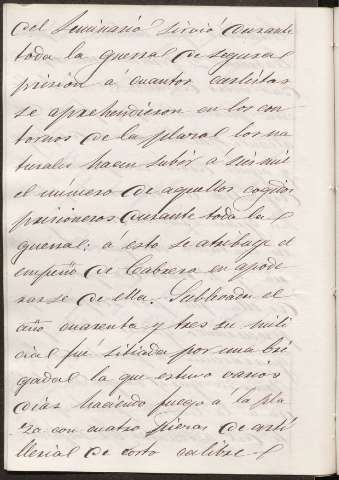 del Seminario sirvió durante
toda la guerra de segura
prisión a cuantos carlistas
se aprehendieron en los con
tornos de la plaza los na
turales hacen subir á seis mil
el número de aquellos cogidos
prisioneros durante toda la
guerra; á esto se atribuye el
empeño de Cabrera en apode
rarse de ella. Sublevada el
año cuarenta y tres su mili
cia fué sitiada por una bri
gada la que estuvo varios
dias haciendo fuego á la pla
za con cuatro piezas de arti
lleria de corto calibre